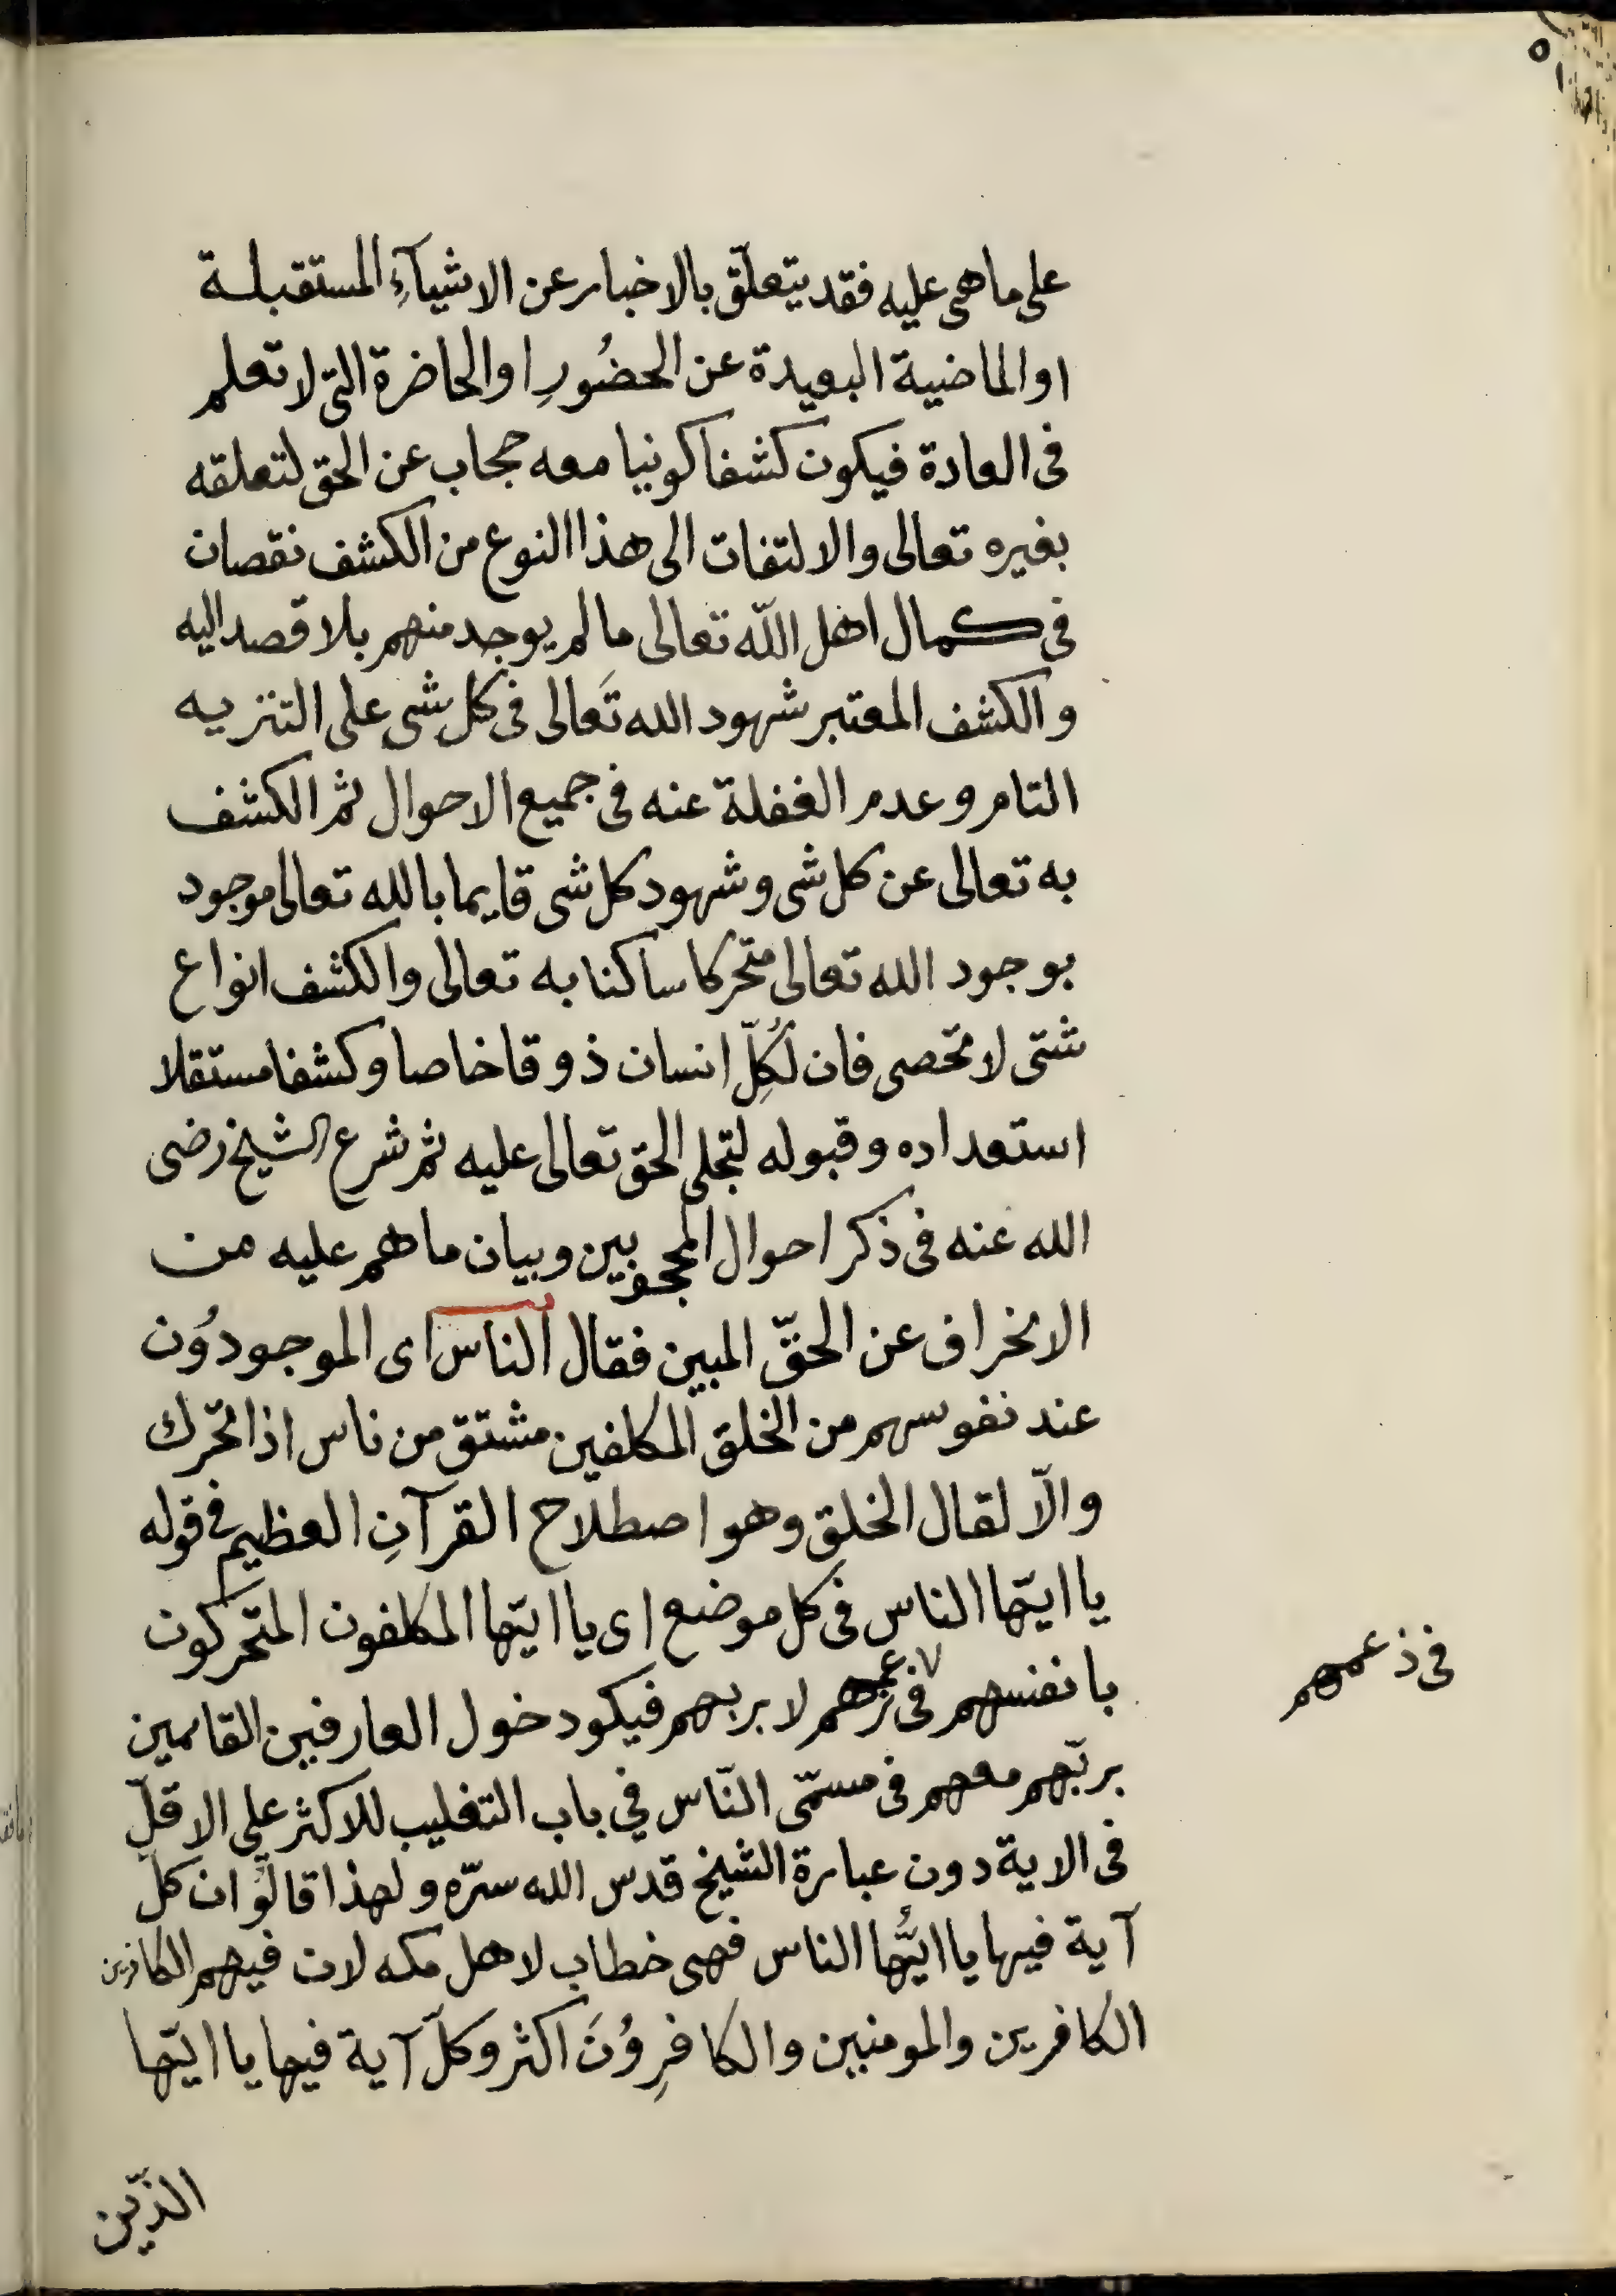 على ما هى عليه فقد يتعلّق بالاخبار عن الاشيآءِ المستقبلة
او الماضية البعيدة عن الحضُورِ او الحاضرة التى لا تعلم
فى العادة فيكون كشفا كونيا معه حجاب عن الحق لتعلقه
بغيره تعالى والالتفات الى هذا النوع من الكشف نقصان
فى كمال اهل اللّه تعالى ما لم يوجد منهم بلا قصد اليه
والكشف المعتبر شهود الله تَعالى فى كل شى على التنزيه
التام وعدم الغفلة عنه فى جميع الاحوال ثم الكشف
به تعالى عن كل شى وشهود كل شى قايما بالله تعالى موجود
بوجود الله تعالى متحركا ساكنا به تعالى والكشف انواع
شتى لا تحصى فان لكُلِّ انسان ذوقا خاصا وكشفا مستقلا
استعداده وقبوله لتجلى الحق تعالى عليه ثم شرع الشيخ رضى
الله عنه فى ذكر احوال المحجوبين وبيان ما هم عليه من
الانحراف عن الحقّ المبين فقال الناس اى الموجودُون
عند نفوسهم من الخلق المكلفين مشتق من ناس اذا تحرك
والّا لقال الخلق وهو اصطلاح القرآنِ العظيم فى قوله
يا ايّها الناس فى كل موضع اى يا ايّها المكلفون المتحركون
بانفسهم فى زعمهم لا بربهم فيكو دخول العارفين القايمين
بربّهم معهم فى مسمّى النّاس في باب التغليب للاكثر على الاقلّ
فى الاية دون عبارة الشيخ قدس الله سرّه ولهذا قالُو ان كلّ
آية فيها يا ايُّها الناس فهى خطاب لاهل مكه لان فيهم الكافرين
الكافرين والمومنين والكافِروُنَ اكثر وكلّ آية فيها يا ايّها
الذّين
فى ذعمهم